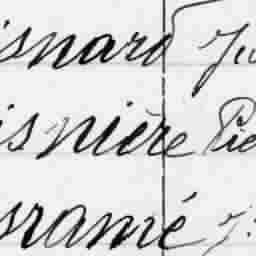 isnard Ju
isnière Pie
sramé J